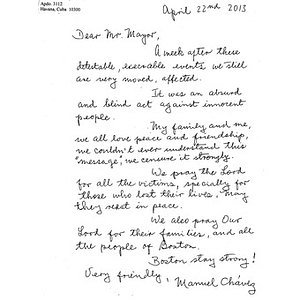 Apdo. 3112
Havana, Cuba 10300
April 22nd 2013
Dear Mr. Mayor,
A week after these
detestable, execrable events, we still
are very moved, affected.
It was an absurd
and blind act against innocent
people.
My family and me,
we all love peace and friendship,
we couldn't ever understand this
"message", we censure it strongly.
We pray the Lord
for all the victims, specially for
those who lost their lives, may
they rest in peace.
We also pray Our
Lord for their families, and all
the people of Boston.
Boston stay strong!
Very friendly,
Manuel Chávez